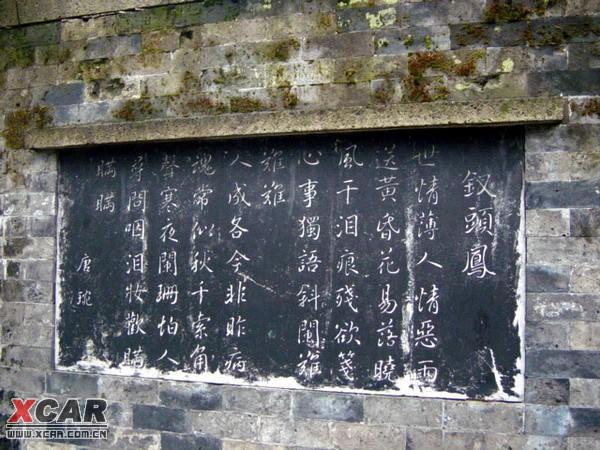 釵頭鳳
世情薄人情惡雨
送黃昏花易落曉
風干泪痕殘欲箋
心事獨語斜闌難
難難
人成各今非昨病
魂常似秋千索角
聲寒夜闌珊怕人
尋問咽泪妝歡瞞
瞞瞞
唐琬
XCAR
WWW.XCAR.COM.CN